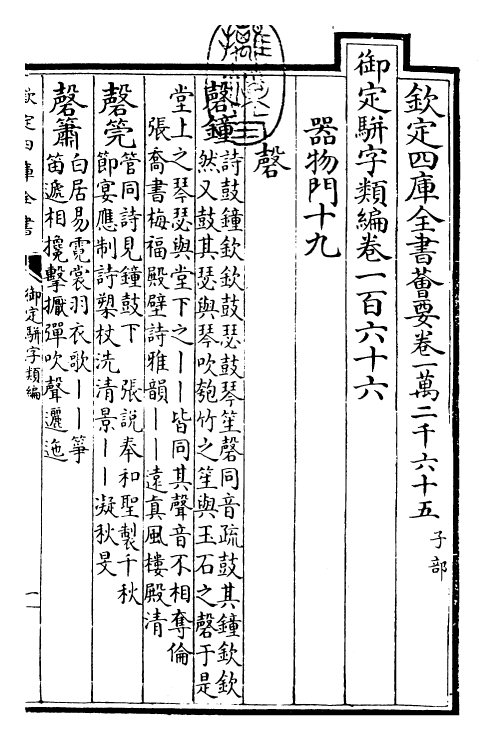 欽定四庫全書薈要卷一萬二千六十五 子部
御定駢字類編卷一百六十六
器物門十九
磬
磬鐘
詩鼓鐘欽欽鼓瑟鼓琴笙磬同音疏鼓其鐘欽欽
然又鼓其瑟與琴吹匏竹之笙與玉石之磬于是
堂上之琴瑟與堂下之丨丨皆同其聲音不相奪倫
張喬書梅福殿壁詩雅韻丨丨遠真風樓殿清
磬筦
管同詩見鐘鼓下 張說奉和聖製千秋
節宴應制詩槊杖洗清景丨丨凝秋旻
磬簫
白居易霓裳羽衣歌丨丨箏
笛遞相攙擊擫彈吹聲邐迤
欽定四庫全書
御定駢字類編
一